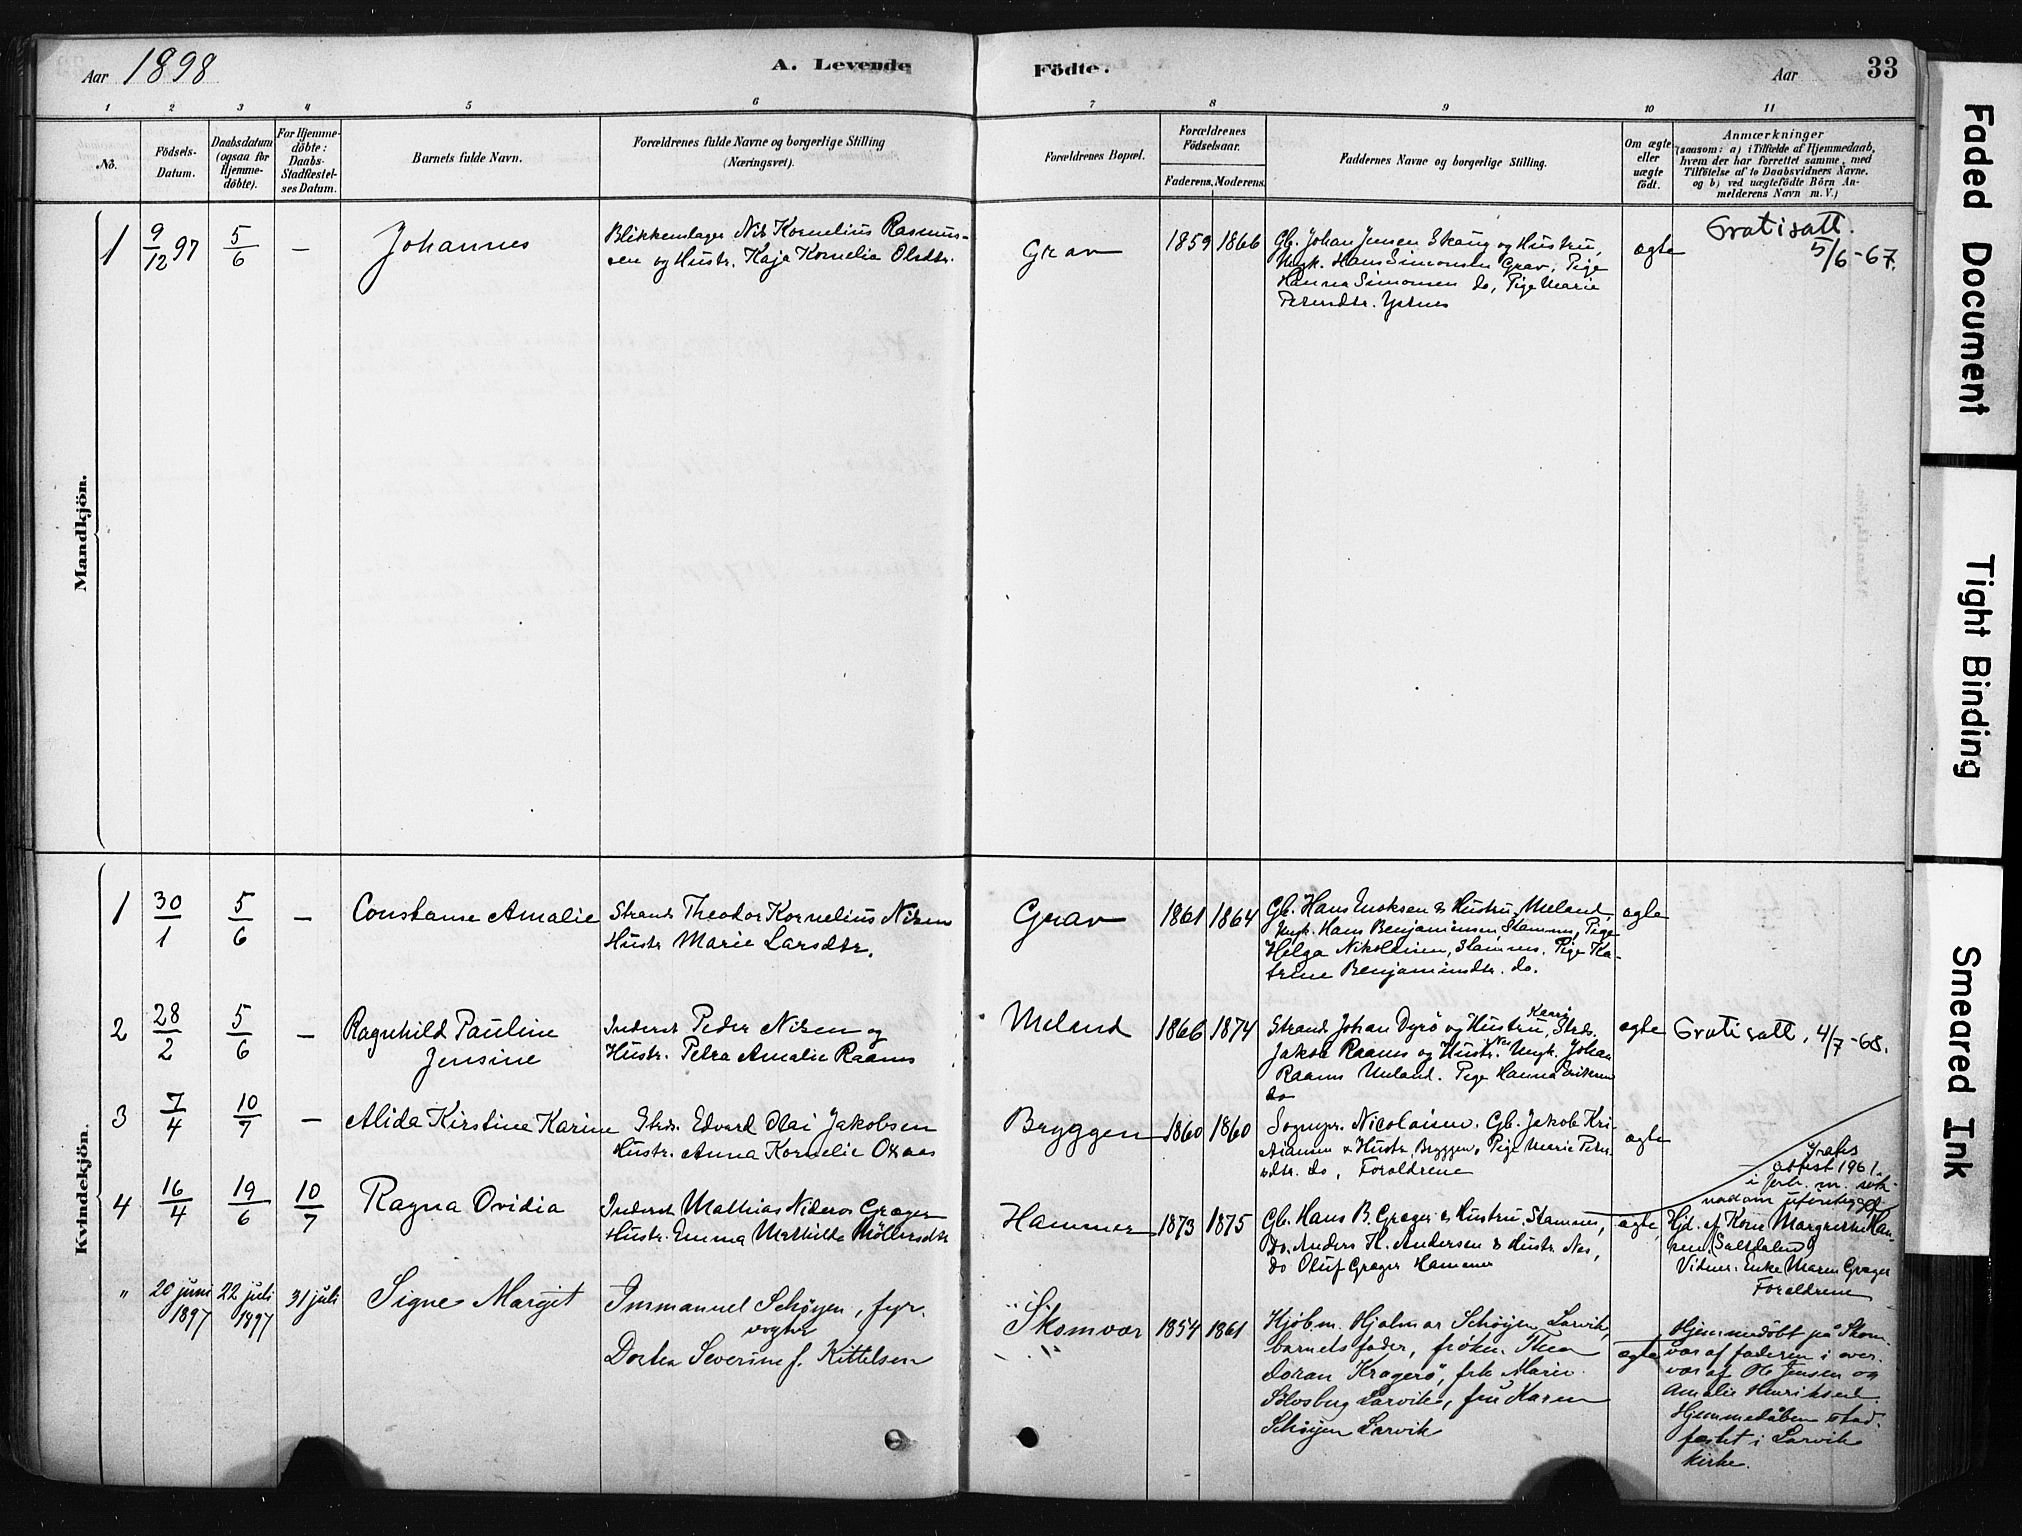 Aar 1898
A. Levende
Födte.
Aar
33
1
2
3
4
5
6
7
8
9
10
11
No.
Födsels-
Datum.
Daabsdatum
(ogsaa for
Hjemme-
döbte).
For Hjemme-
döbte:
Daabs-
Stadfæstel-
ses Datum.
Barnets fulde Navn.
Forældrenes fulde Navne og borgerlige Stilling
(Næringsvei).
Forældrenes Bopæl.
Forældrenes
Födselsaar.
Faderens.
Moderens.
Faddernes Navne og borgerlige Stilling.
Om ægte
eller
uægte
födt.
Anmærkninger
(saasom: a) i Tilfælde af Hjemmedaab,
hvem der har forrettet samme, med
Tilföielse af to Daabsvidners Navne,
og b) ved uægtefödte Börn An-
melderens Navn m. V.)
Mandkjön.
1
9/12 97
5/6
—
Johannes
Blikkenslager Nils Kornelius Rasmus-
sen og Hustr. Kaja Kornelia Olsdtr.
Grav
1859
1866
Gb. Johan Jensen Skaug og Hustru,
Ungk. Hans Simonsen Grav, Pige
Hanna Simonsen do, Pige Marie
ægte
Gratisatt.
5/6-67.
Kvindekjön.
1
30/1
5/6
—
Constanse Amalie
Strands. Theodor Kornelius Nilsen
Hustr Marie Larsdtr.
Grav
1861
1864
Gb. Hans Enoksen & Hustru Meland,
Ungk. Hans Benjaminsen, Stamnes, Pige
Helga Nikolaisen, Stamnes, Pige Ka-
trine Benjaminsdtr. do.
ægte
2
28/2
5/6
—
Ragnhild Pauline
Jensine
Inderst Peder Nilsen og
Hustr. Petra Amalie Raanes
Meland
1866
1874
Strands. Johan Dyrö og Hustru, Strds.
Jakob Raanes og Hustr. Ungk. Johan
Raanes Meland. Pige Hanna Eriksen
do
ægte
Gratisatt, 4/7-68.
3
7/4
10/7
—
Alida Kirstine Karine
Strds. Edvard Olai Jakobsen
Hustr. Anna Kornelie Oxaas
Bryggen
1860
1860
Sognepr. Nicolaisen. Gb. Jakob Kri-
stiansen & Hustr, Bryggen, Pige Marie Peter-
sdtr. do, Forældrene
ægte
4
16/4
19/6
10/7
Ragna Ovidia
Inderst Mathias Nideros Grager
Hustr. Emma Mathilde Möllersdtr
Hammer
1873
1875
Gb. Hans B. Grager & Hustru, Stamnes,
Do. Anders H. Andersen & Hustr Nes,
do Oluf Grager Hammer
ægte
Gratis
attest 1961
i forb. m. søk-
nad om uføretrygd
Hjd. af Kone Margrethe Han-
sen (Saltdalen)
Vidner: Enke Maren Grager
Forældrene
"
20 juni
1897
22 juli
1897
31 juli
Signe Margit
Immanuel Schöyen, fyr-
vogter
Dortea Severine f. Kittelsen
Skomvær
1854
1861
Kjöbm. Hjalmar Schöyen Larvik,
barnets fader, fröken Thea
Doran Kragerö, frk Marie
Larvik, fru Karen
Schöyen Larvik
ægte
Hjemmedöbt på Skom-
vær af faderen i over-
vær af Ole Jensen og
Amalie Henriksen.
Hjemmedåben stad-
fæstet i Larvik
kirke.
Faded Document
Tight Binding
Smeared Ink